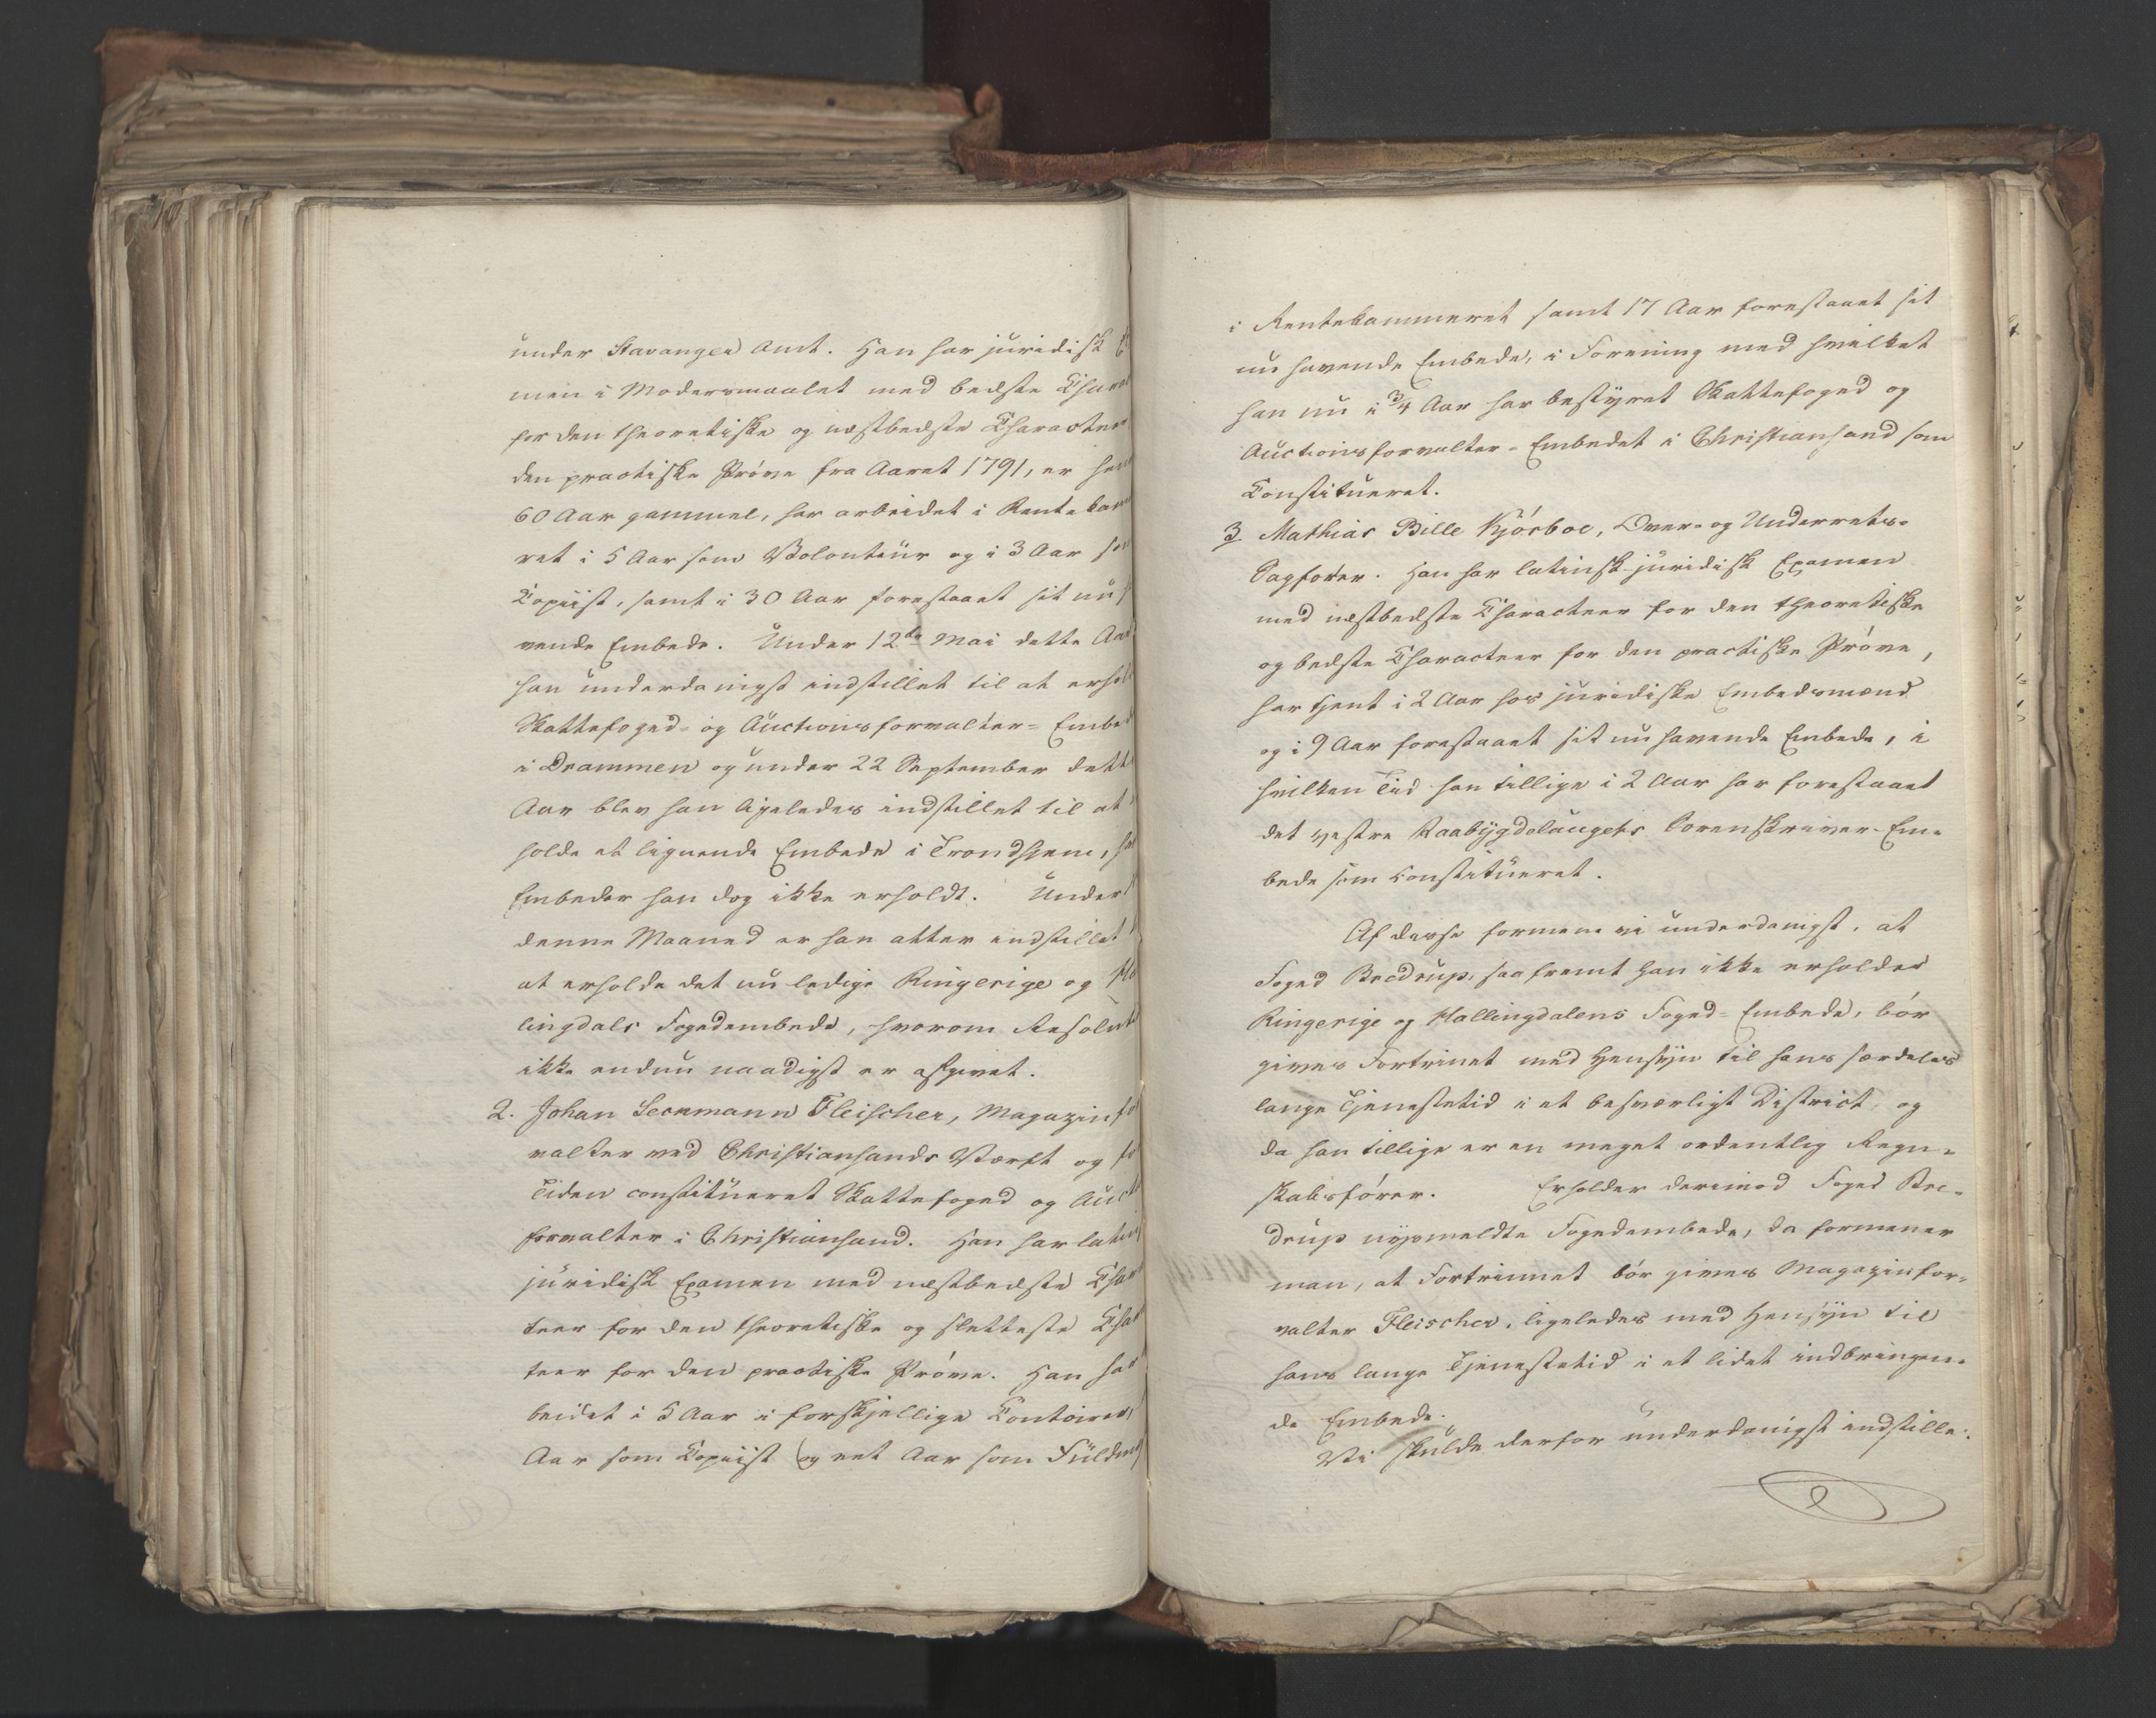 under Stavanger Amt. Han har juridisk E
men i Modersmaalet med bedste Charac
for den theoretiske og næstbedste Characteer
den practiske Prøve fra Aaret 1791, er hen
60 Aar gammel, har arbeidet i Rentekam
ret i 5 Aar som Volonteur og i 3 Aar som
Copiist, samt i 30 Aar forestaaet sit nu h
vende Embede. Under 12te Mai dette Aar
han underdanigst indstillet til at erhol
Skattefoged- og Auctionsforvalter-Embed
i Drammen og under 22 September dette
Aar blev han ligeledes indstillet til at
holde et lignende Embede i Trondhjem, h
Embeder han dog ikke erholdt. Under
denne Maaned er han atter indstillet
at erholde det nu ledige Ringerige og Ha
lingdals Fogedembede, hvorom Resoluti
ikke endnu naadigst er afgivet.
2. Johan Seckmann Fleischer, Magazinfo
valter ved Christiansands Værft og fo
Tiden constitueret Skattefoged og Auct
forvalter i Christiansand. Han har latin
juridisk Examen med næstbedste Char
teer for den theoretiske og sletteste Cha
teer for den practiske Prøve. Han ha
beidet i 5 Aar i forskjellige Contoirer,
Aar som Copiist og eet Aar som Fuldm
i Rentekammeret samt 17 Aar forestaaet sit
nu havende Embede, i Forening med hvilket
han nu i 3/4 Aar har bestyret Skattefoged og
Auctionsforvalter-Embedet i Christiansand som
Constitueret.
3 Mathias Bille Kjörboe, Over- og Underrets-
Sagfører. Han har latinsk-juridisk Examen
med næstbedste Characteer for den theoretiske
og bedste Characteer for den practiske Prøve,
har tjent i 2 Aar hos juridiske Embedsmænd
og i 9 Aar forestaaet sit nu havende Embede, i
hvilken Tid han tillige i 2 Aar har forestaaet
det vestre Raabygdelaugets Sorenskriver-Em-
bede som constitueret.
Af disse formene vi underdanigst, at
Foged Bredrup, saafremt han ikke erholder
Ringerige og Hallingdalens Foged-Embede, bør
gives Fortrinet med Hensyn til hans særdeles
lange Tjenestetid i et besværligt District, og
da han tillige er en meget ordentlig Regn-
skabsfører. Erholder derimod Foged Bre-
drup nysmeldte Fogedembede, da formener
man, at Fortrinnet bør gives Magazinfor-
valter Fleischer, ligeledes med Hensyn til
hans lange Tjenestetid i et lidet indbringen-
de Embede.
Vi skulde derfor underdanigst indstille: